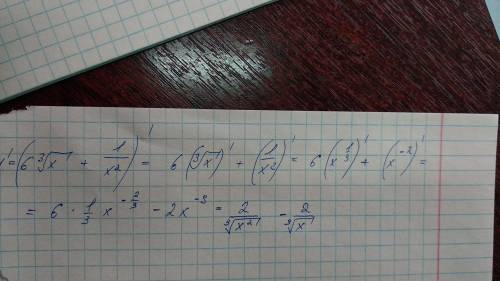 y' = (6∛x + 1/x²)' = 6(∛x)' + (1/x²)' = 6(x^(1/3))' + (x^(-2))' =
= 6 · 1/3 x^(-2/3) - 2x^(-3) = 2/∛(x²) - 2/∛x